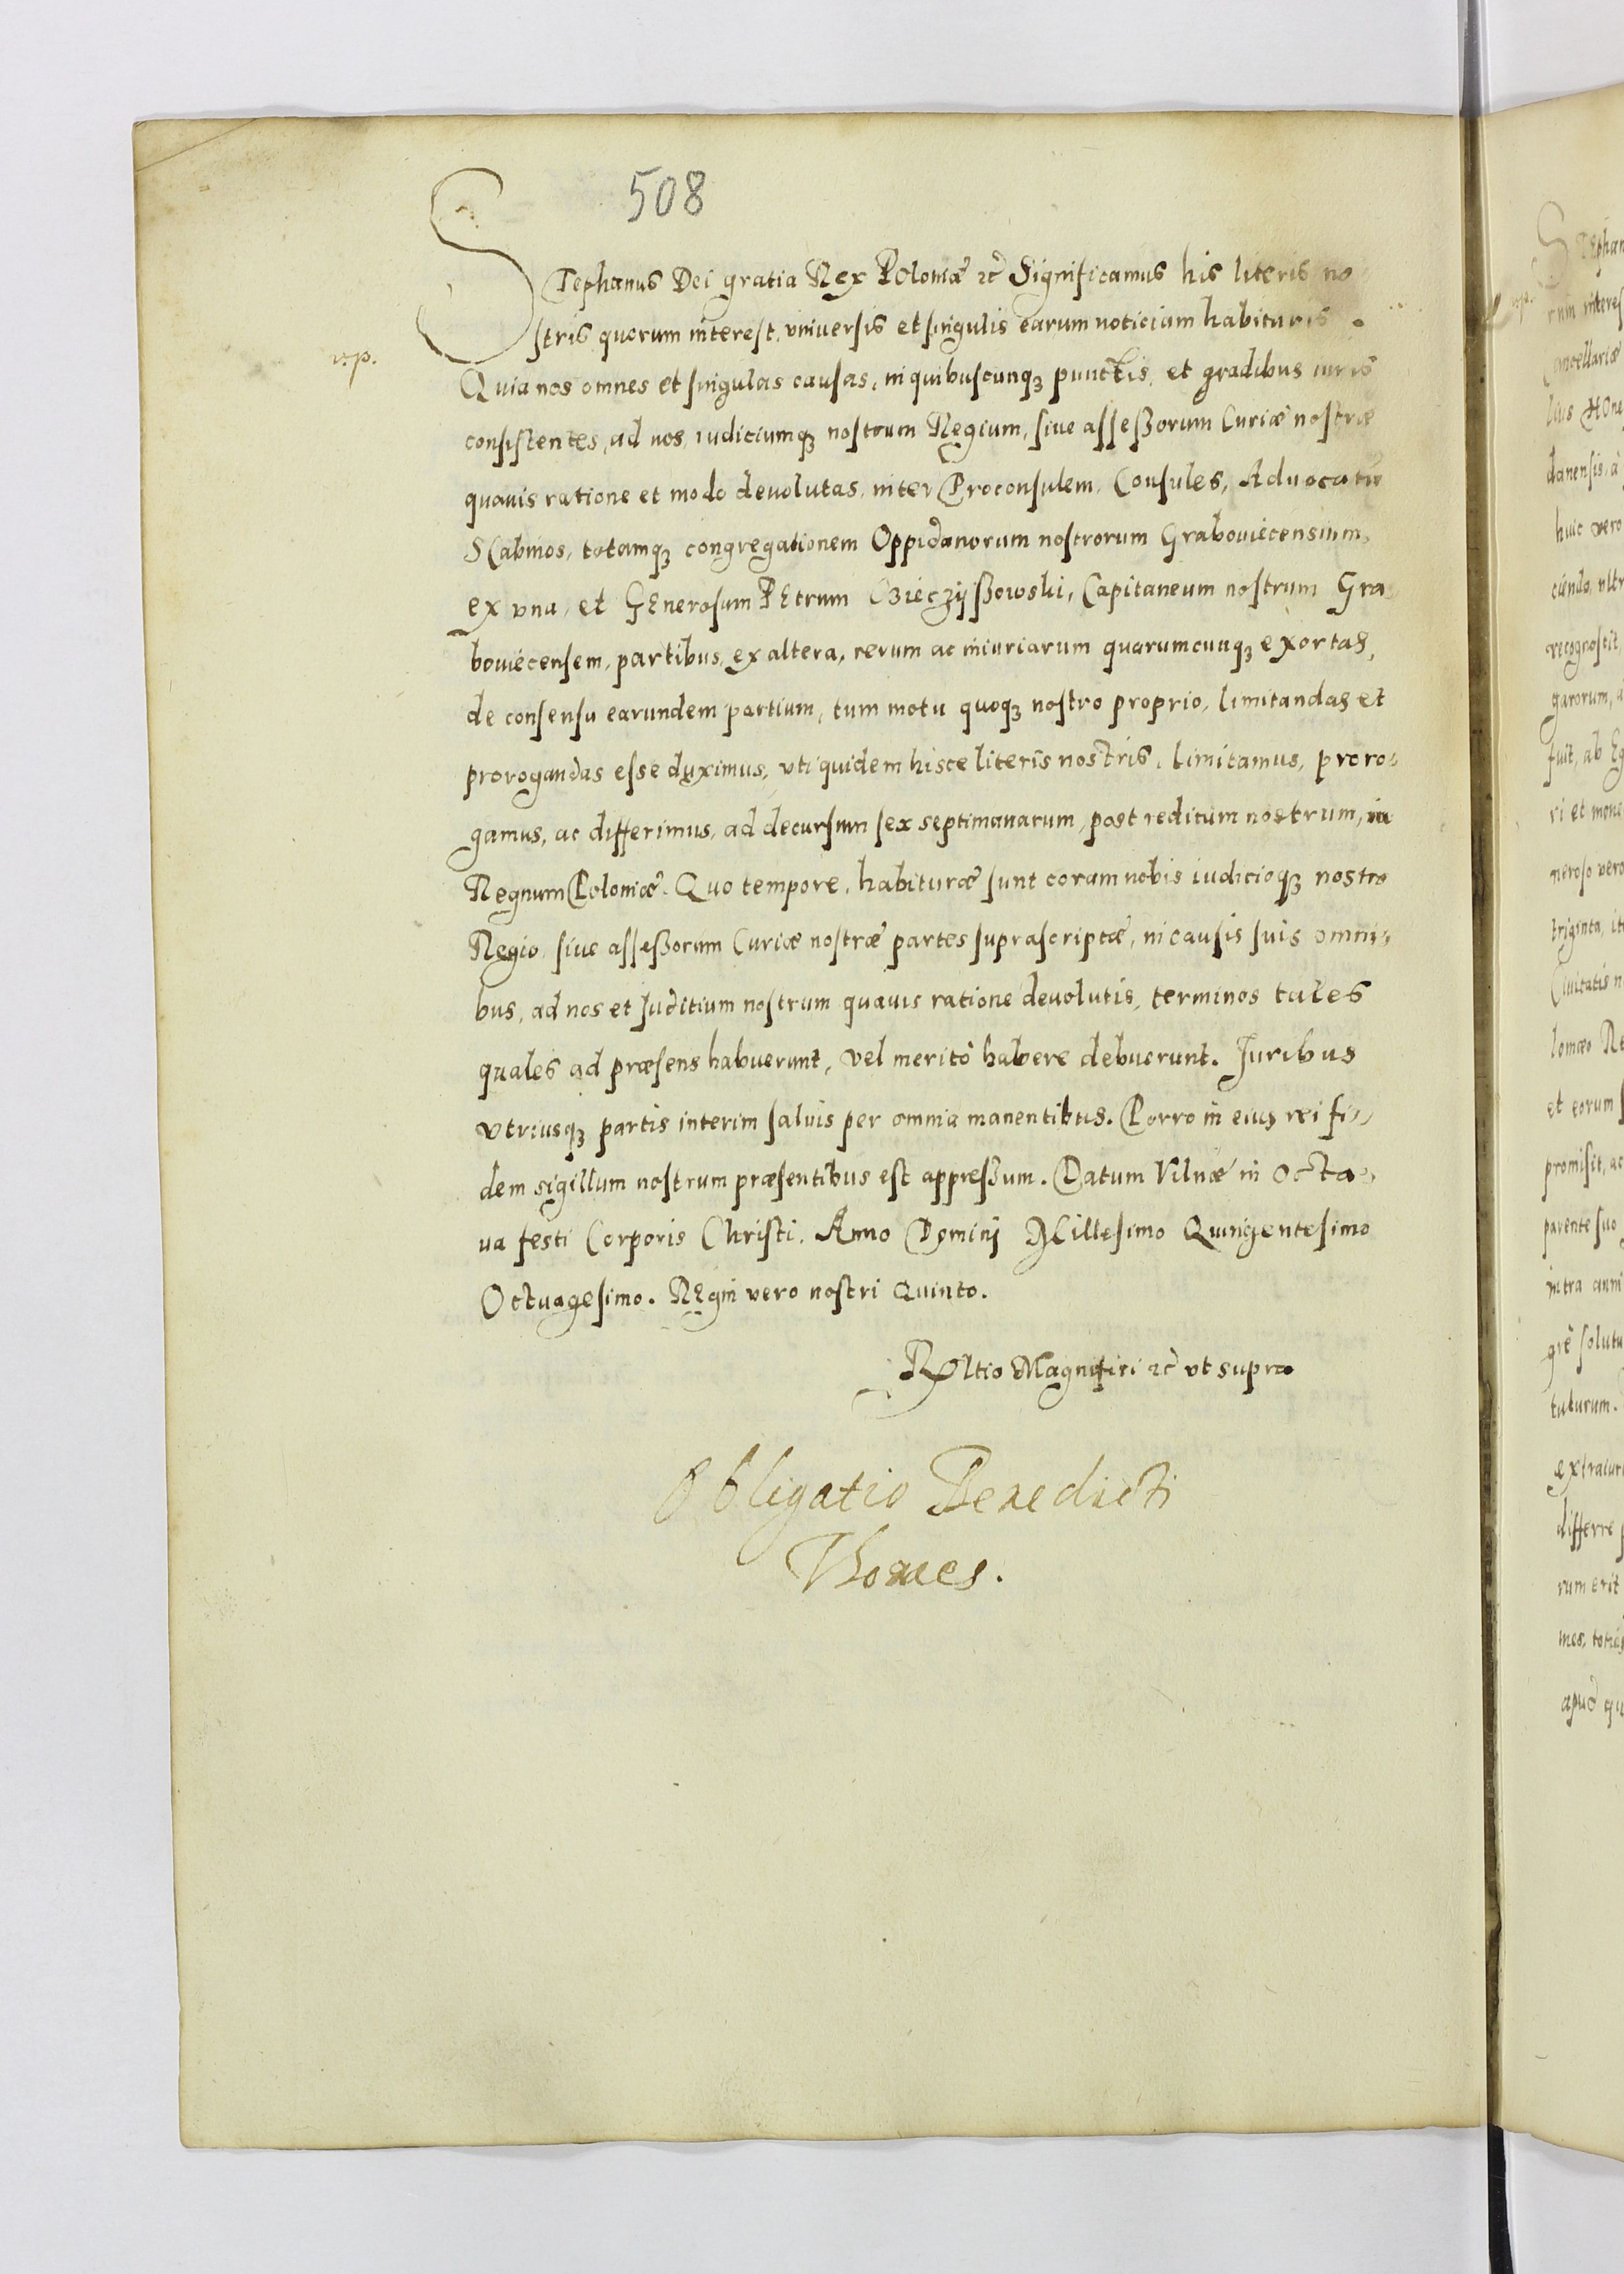 508
STephanus Dei gratia Rex Poloniæ ꝛc̃ Significamus his literis no
stris quorum interest, vniuersis et singulis earum noticiam habituris.
v.p.
Quia nos omnes et singulas causas, in quibuscunqꝫ punctis, et gradibus iuris
consistentes, ad nos, iudiciumqꝫ nostrum Regium, siue assessorum Curiæ nostræ
quauis ratione et modo deuolutas, inter Proconsulem, Consules, Aduocatũ
SCabinos, totamqꝫ congregationem Oppidanorum nostrorum Grabouiecensium,
ex vna, et GEnerosum PEtrum Capitaneum nostrum Gra-
bouiecensem, partibus, ex altera, rerum ac iniuriarum quarumcunqꝫ exortas,
de consensu earundem partium, tum motu quoqꝫ nostro proprio, limitandas et
prorogandas esse duximus, vti quidem hisce literis nostris, limitamus, proro-
gamus, ac differimus, ad decursum sex septimanarum, post reditum nostrum, in
Regnum Poloniæ. Quo tempore, habituræ sunt coram nobis iudicioqꝫ nostro
Regio, siue assessorum Curiæ nostræ partes suprascriptæ, in causis suis omni-
bus, ad nos et Juditium nostrum quauis ratione deuolutis, terminos tales
quales ad præsens habuerunt, vel meritò habere debuerunt. Juribus
vtriusqꝫ partis interim saluis per omnia manentibus. Porro in eius rei fi-
dem sigillum nostrum præsentibus est appressum. Datum Vilnæ in octa-
ua festi Corporis Christi. Anno Dominj Millesimo Quingentesimo
Octuagesimo. REgni vero nostri Quinto.
Rltio Magnifici ꝛc̃ vt supra
Obligatio Benedicti